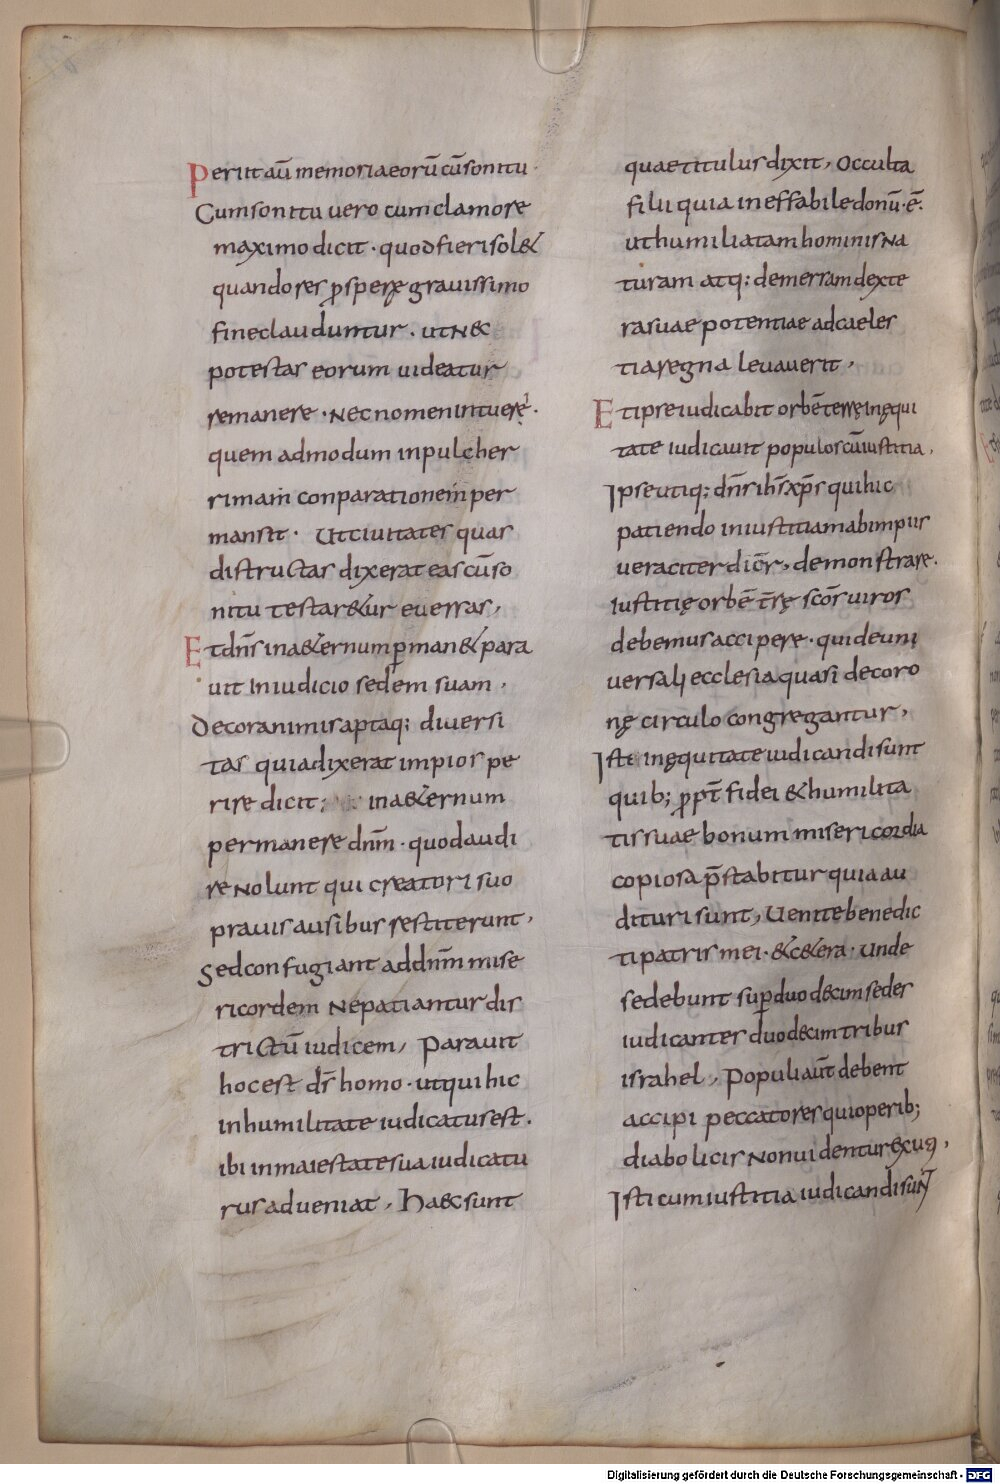 Periit aū memoria eorū cū sonitu.
Cum sonitu vero cum clamore
maximo dicit · quod fieri sol&
quando res p̱sperę gravissimo
fine clauduntur · ut nec
potestas eorum videatur
remanere · Nec nomen intuere.
quem admodum in pulcher
rimam conparationem per
mansit · Ut civitates quas
distructas dixerat eas cū so
nitu testar&ur everras,
Et dn̄s in a&ernum p̱man&para
vit In iudicio sedem suam ·
Decora nimis aptaq; diversi
tas quia dixerat impios pe
rire dicit; in a&ernum
permanere dnm̄ · quod audi
re Nolunt qui creatori suo
pravis ausibus restiterunt,
Sed confugiant ad dnm̄ mise
ricordem Ne patiantur dis
trictū iudicem, Paravit
hoc est ds̄ homo · ut qui hic
in humilitate iudicatus est.
ibi in maiestate sua iudicatu
rus adveniat, Haec sunt
quae titulus dixit, Occulta
filii quia ineffabile donū · ē.
ut humiliatam hominis Na
turam atq; demersam dexte
ra suae potentiae ad caeles
tia regna levaverit,
Et ipse iudicabit orbē terre in ęqui
tate iudicavit populos cū iustitia,
Ipse utiq; dn̄s ih̄s xp̄s qui hic
patiendo iniustitiam ab impiis
veraciter dicr̄, demonstrare.
Iustitię orbē t̄rę scōs viros
debemus accipere · qui de uni
versali ecclesia quasi decoro
nę circulo congregantur,
Isti in ęquitate iudicandi sunt
quib; p̱pt̄ fidei & humilita
tis suae bonum misericordia
copiosa p̄stabitur quia au
dituri sunt, Venite benedic
ti patris mei · &c&era · Unde
sedebunt sup̱ duodecim sedes
iudicantes duodecim tribus
israhel, Populi aūt debent
accipi peccatores qui operib;
diabolicis Non videntur exui,
Isti cum iustitia iudicandi sunt
Digitalisierung gefördert durch die Deutsche Forschungsgemeinschaft - DFG